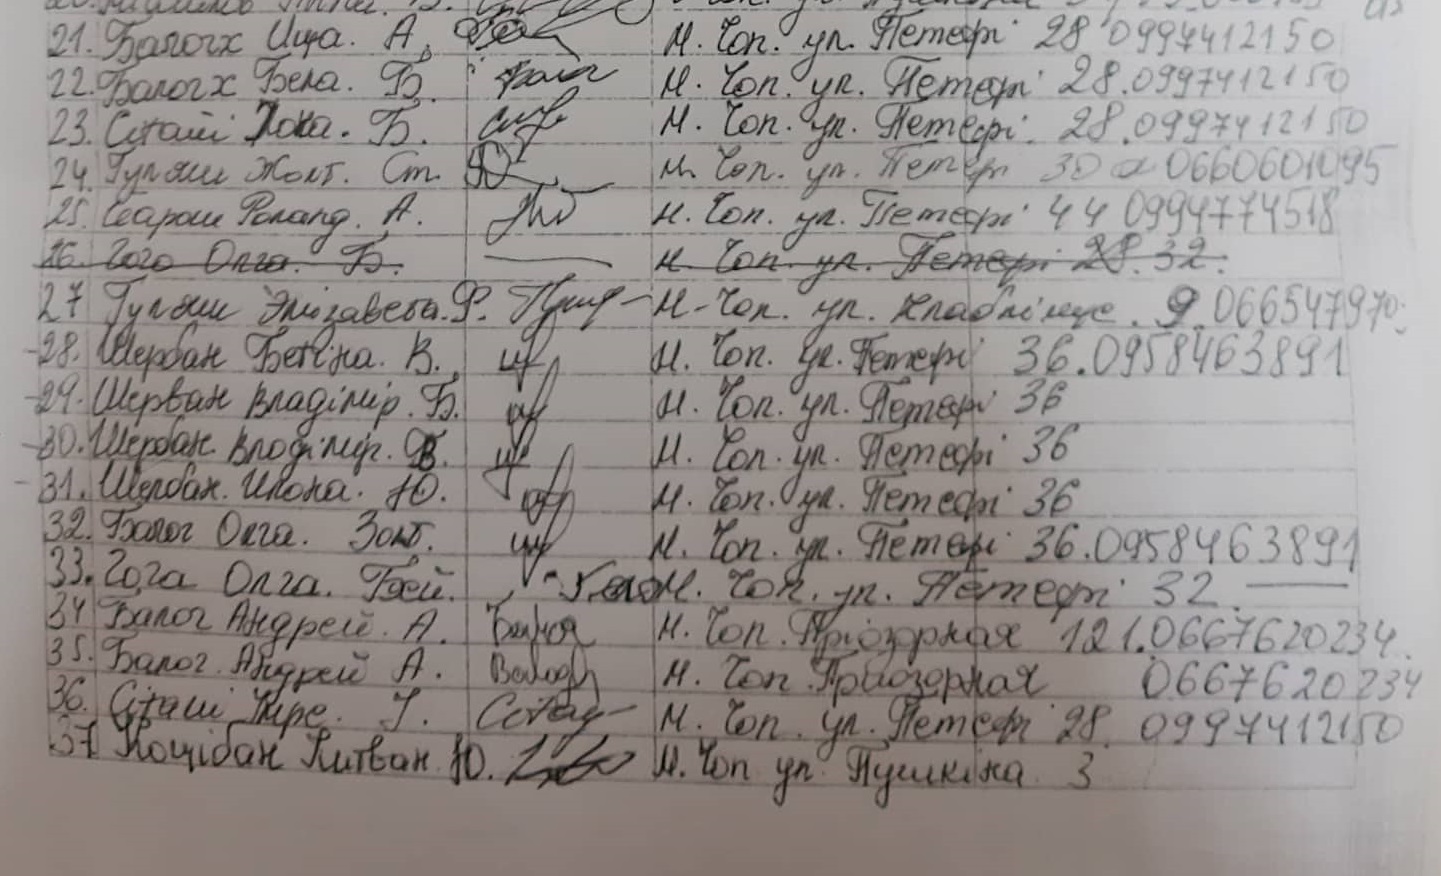 21. Балогх Ица. А. м. Чоп. ул. Петефі 28 0997412150
22. Балогх Бела. Б. м. Чоп. ул. Петефі 28.0997412150
23. Сіташі Йока. Б. м. Чоп. ул. Петефі. 28.0997412150
24. Гуляш Жолт. Ст. м. Чоп. ул. Петефі 30 а 0660601095
25. Роланд. А. м. Чоп. ул. Петефі 44 0994774518
26. Гого Олга. Б. м. Чоп. ул. Петефі 28. 32.
27 Гуляш Элізавета. Ф. м. Чоп. ул. 9.066547970
28. Щербан Бетіна. В. м. Чоп. ул. Петефі 36.0958463891
29. Щербан Владімір. Б. м. Чоп. ул. Петефі 36
30. Щербан Владімір. В. м. Чоп. ул. Петефі 36
31. Щербан. Илона. Ю. м. Чоп. ул. Петефі 36
32. Балог Олга. Золт. м. Чоп. ул. Петефі 36.0958463891
33. Гога Олга. м. Чоп. ул. Петефі 32.
34 Балог Андрей. А. м. Чоп. Пріозорная 121.0667620234.
35. Балог. Андрей А. м. Чоп Пріозорная 0667620234
36. Сіташі Імре. І. м. Чоп. ул. Петефі 28. 0997412150
37 Коцібан Ю. м. Чоп ул. Пушкіна 3